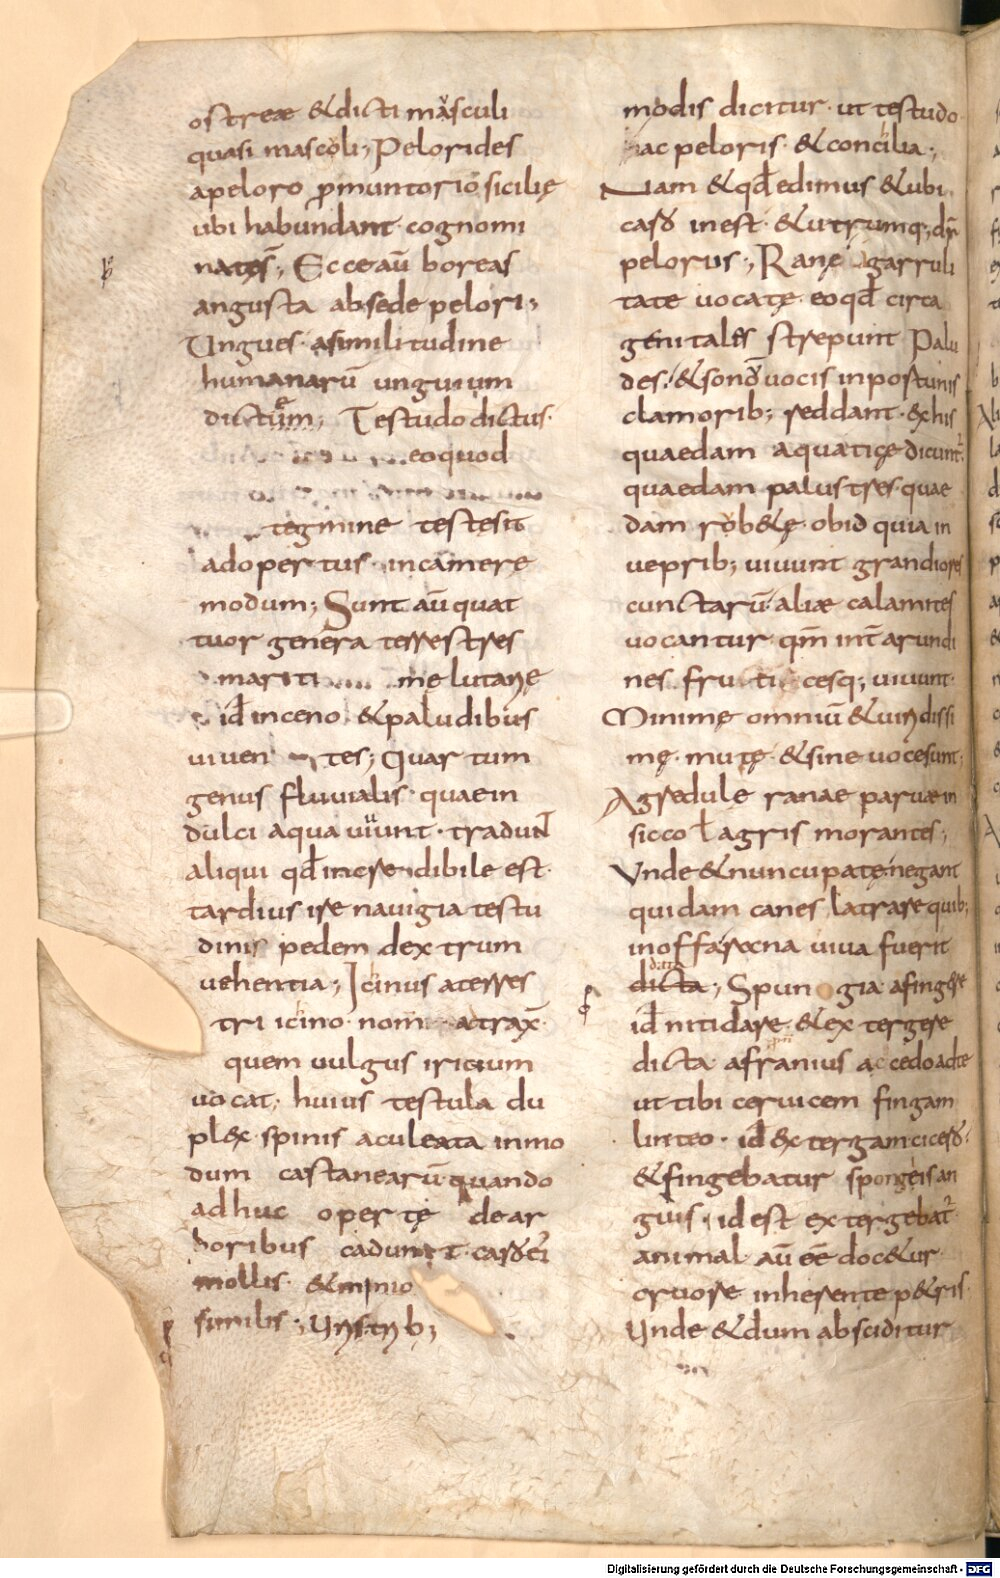 ostreae & dicti masculi
quasi mascoli; Pelorides
apeloro ꝓmuntorio sicilię
ubi habundant cognomi
natęs; Ecce aū boreas
angusta ab sede pelori;
Ungues asimilitudine
humanarū unguium
dictum; Testudo dictus
eoquod
tegmine testesit
adopertus incamerę
modum; Sunt aū quat
tuor genera terrestres
marit mę lutarię
id̄ inceno & paludibus
uiuen tes; Quartum
genus fluuialis quaein
dulci aqua uiuunt tradunt
aliqui qd̄ incredibile est
tardius ire nauigia testu
dinis pedem dextrum
uehentia; Icinus aterres
tri icino nom atrax̄
quem uulgus iricium
uocat; huius testula du
plex spinis aculeata inmo
dum castanearū quando
adhuc opertę dear
boribus cadunt
mollis & minio
similis;
modis dicitur ut testudo
ac peloris & concilia;
Nam & qd̄ edimus & ubi
inest & utrumq; dr̄
pelorus; Ranę garruli
tate uocatę eoqd̄ circa
genitales strepunt Palu
des & sonos uocis inportunis
clamorib; reddant & his
quaedam aquaticę dicunt
quaedam palustres quae
dam rob&ę obid quia in
ueprib; uiuunt grandiores
cunctarū aliae calamites
uocantur qm̄ int̄ arundi
nes fruti cesq; uiuunt
Minimę omniū & uiridissi
mę mutę & sine uoce sunt
Agredulę ranae paruae in
sicco ł agris morantes;
Unde & nuncupatę negant
quidam canes latrare quib;
inoffa rana uiua fuerit
dicta; Spun gia afingere
id̄ nitidare & ex tergere
dicta afranius accedo adte
ut tibi ceruicem fingam
linteo id̄ extergam
& fingebatur spongeis an
guis idest extergebat
animal aū eē doc&ur
cruore inherente p&ris
Unde & dum absciditur
Digitalisierung gefördert durch die Deutsche Forschungsgemeinschaft - DFG